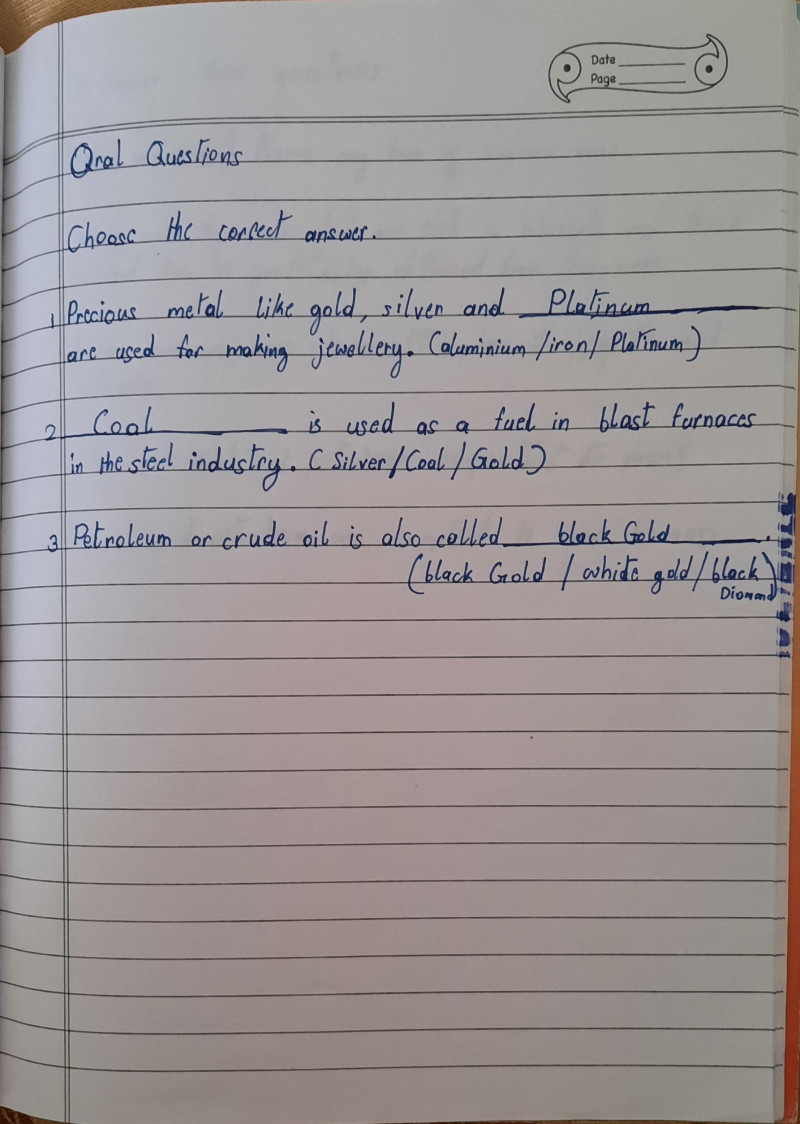 Date
Page
Oral Questions
Choose the correct answer.
1 Precious metal like gold, silver and Platinum
are used for making jewellery. (aluminium /iron/ Platinum)
2 Coal is used as a fuel in blast furnaces
in the steel industry. ( Silver/Coal/Gold)
3 Petroleum or crude oil is also called black Gold.
(black Gold / white gold/black)
Diomond